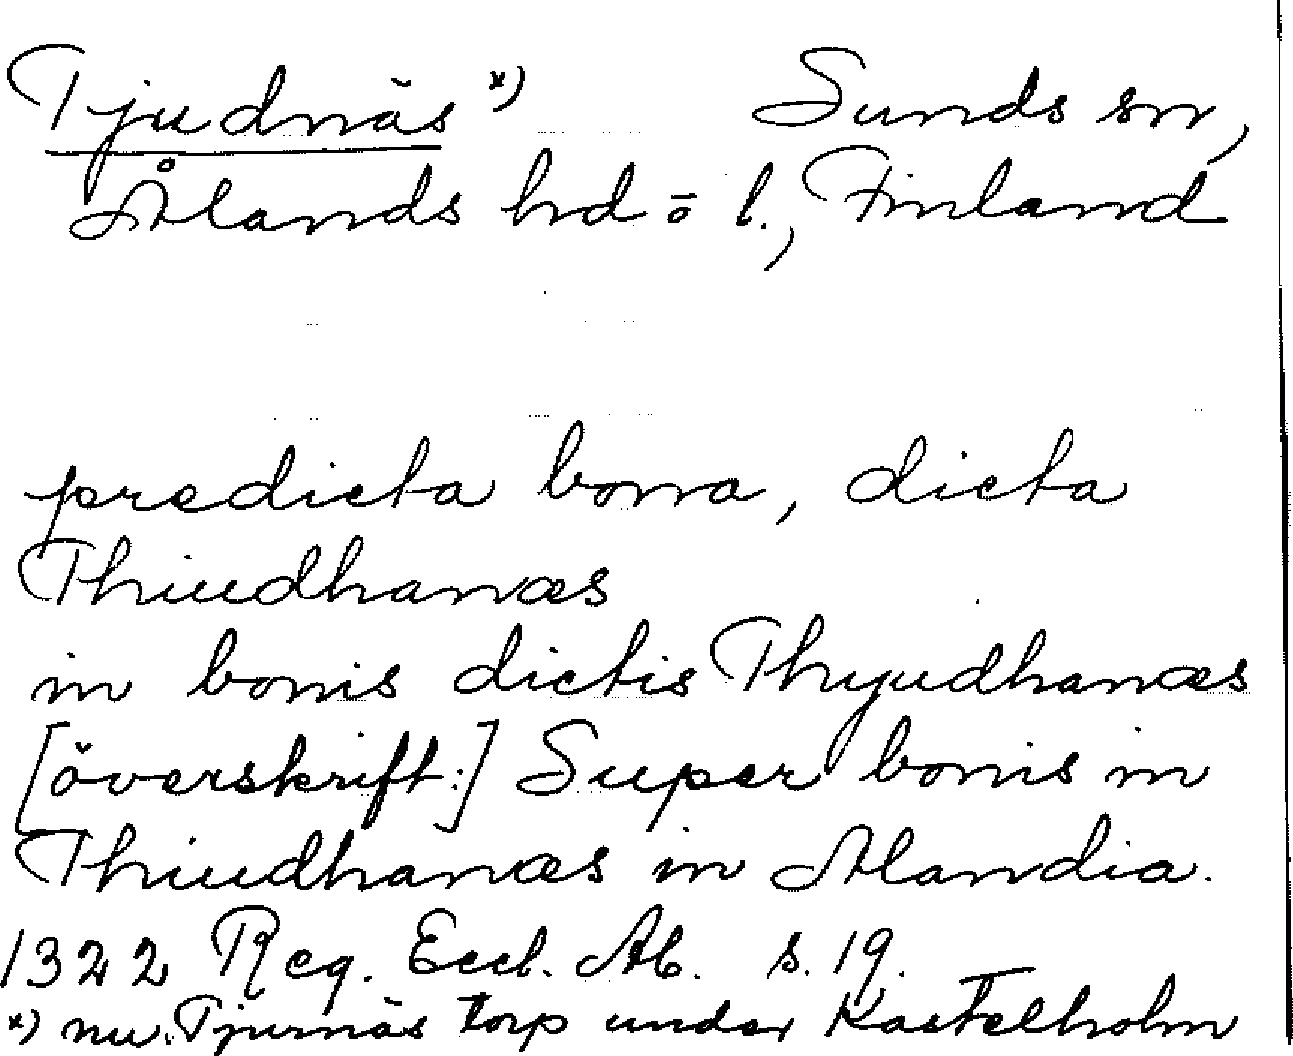 Tjudnäs *) Sunds sn,
Ålands hd o l., Finland
predicta bona, dicta
Thiudhanæs
in bonis dictis Thyudhanæs
[överskrift:] Super bonis in
Thiudhanæs in Alandia.
1322 Reg. Eccl. Ab. s. 19.
*) nu. Tjurnäs torp under Kastelholm